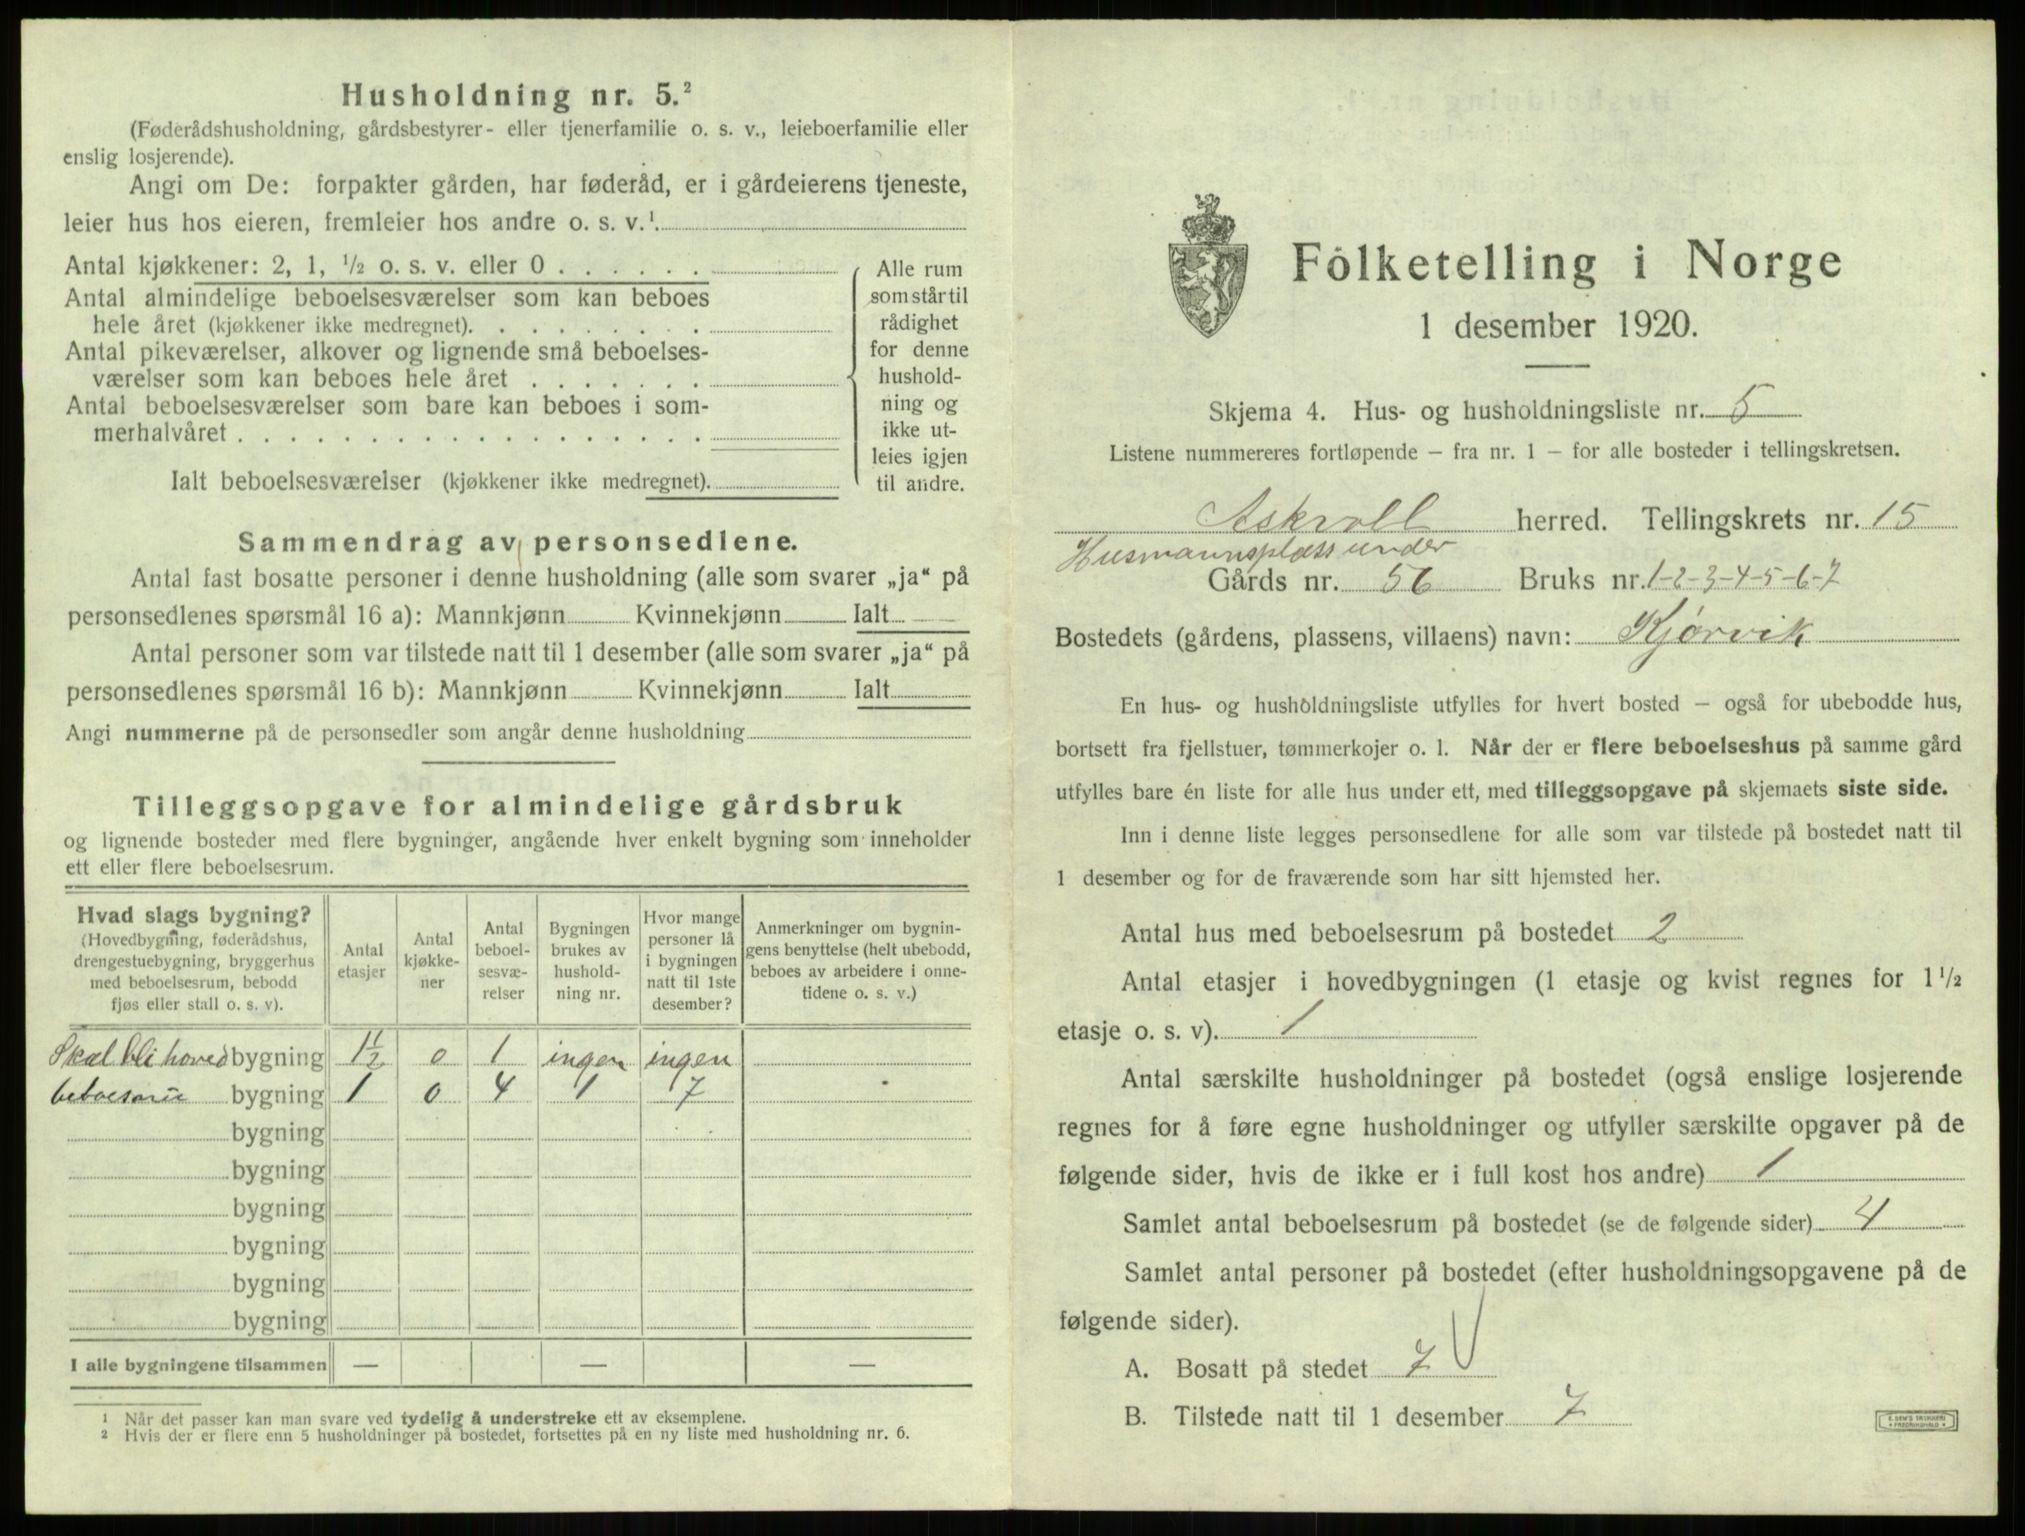 Husholdning nr. 5.²
(Føderådshusholdning, gårdsbestyrer- eller tjenerfamilie o. s. v., leieboerfamilie eller
enslig losjerende).
Angi om De: forpakter gården, har føderåd, er i gårdeierens tjeneste,
leier hus hos eieren, fremleier hos andre o. s. v.¹.
Antal kjøkkener: 2, 1, ½ o. s. v. eller 0 . . . . . .
Antal almindelige beboelsesværelser som kan beboes
hele året (kjøkkener ikke medregnet). . . . . . . . .
Antal pikeværelser, alkover og lignende små beboelses-
værelser som kan beboes hele året . . . . . . .
Antal beboelsesværelser som bare kan beboes i som-
merhalvåret . . . . . . . . . . . . . . . . . .
Ialt beboelsesværelser (kjøkkener ikke medregnet).
Alle rum
som står til
rådighet
for denne
hushold-
ning og
ikke ut-
leies igjen
til andre.
Sammendrag av personsedlene.
Antal fast bosatte personer i denne husholdning (alle som svarer „ja“ på
personsedlenes spørsmål 16 a): Mannkjønn Kvinnekjønn Ialt
Antal personer som var tilstede natt til 1 desember (alle som svarer „ja“ på
personsedlenes spørsmål 16 b): Mannkjønn Kvinnekjønn Ialt
Angi nummerne på de personsedler som angår denne husholdning
Tilleggsopgave for almindelige gårdsbruk
og lignende bosteder med flere bygninger, angående hver enkelt bygning som inneholder
ett eller flere beboelsesrum.
Hvad slags bygning?
(Hovedbygning, føderådshus,
drengestuebygning, bryggerhus
med beboelsesrum, bebodd
fjøs eller stall o. s. v).
Antal
etasjer
Antal
kjøkke-
ner
Antal
beboel-
sesvæ-
relser
Bygningen
brukes av
hushold-
ning nr.
Hvor mange
personer lå
i bygningen
natt til 1ste
desember?
Anmerkninger om bygnin-
gens benyttelse (helt ubebodd,
beboes av arbeidere i onne-
tidene o. s. v.)
Skal bli hoved bygning 1½ 0 1 ingen ingen
bygning 1 0 4 1 7
bygning
bygning
bygning
bygning
bygning
bygning
I alle bygningene tilsammen — — —
¹ Når det passer kan man svare ved tydelig å understreke ett av eksemplene.
² Hvis der er flere enn 5 husholdninger på bostedet, fortsettes på en ny liste med husholdning nr. 6.
Folketelling i Norge
1 desember 1920.
Skjema 4. Hus- og husholdningsliste nr. 5
Listene nummereres fortløpende – fra nr. 1 – for alle bosteder i tellingskretsen.
Askvoll herred. Tellingskrets nr. 15
Husmannsplass under
Gårds nr. 56 Bruks nr. 1-2-3-4-5-6-7
Bostedets (gårdens, plassens, villaens) navn: Kjørvik
En hus- og husholdningsliste utfylles for hvert bosted – også for ubebodde hus,
bortsett fra fjellstuer, tømmerkojer o. l. Når der er flere beboelseshus på samme gård
utfylles bare én liste for alle hus under ett, med tilleggsopgave på skjemaets siste side.
Inn i denne liste legges personsedlene for alle som var tilstede på bostedet natt til
1 desember og for de fraværende som har sitt hjemsted her.
Antal hus med beboelsesrum på bostedet 2
Antal etasjer i hovedbygningen (1 etasje og kvist regnes for 1½
etasje o. s. v). 1
Antal særskilte husholdninger på bostedet (også enslige losjerende
regnes for å føre egne husholdninger og utfyller særskilte opgaver på de
følgende sider, hvis de ikke er i full kost hos andre) 1
Samlet antal beboelsesrum på bostedet (se de følgende sider) 4
Samlet antal personer på bostedet (efter husholdningsopgavene på de
følgende sider).
A. Bosatt på stedet 7
B. Tilstede natt til 1 desember 7